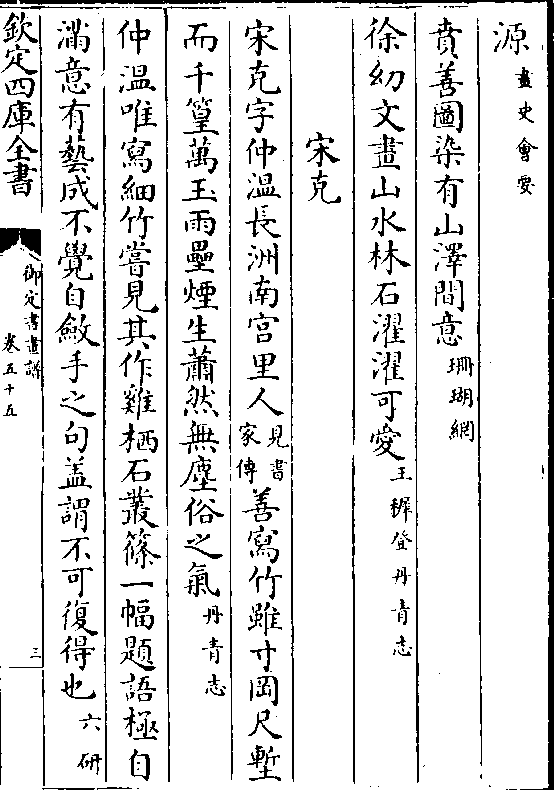 源畫史會要
賁善圖染有山澤間意珊瑚網
徐幼文畫山水林石濯濯可愛王穉登丹青志
宋克
宋克字仲溫長洲南宫里人見書家傳善寫竹雖寸岡尺塹
而千篁萬玉雨疊煙生蕭然無塵俗之氣丹青志
仲溫唯寫細竹嘗見其作雞栖石叢篠一幅題語極自
滿意有藝成不覺自斂手之句盖謂不可復得也六研
欽定四庫全書
御定書畫譜
卷五十五
三